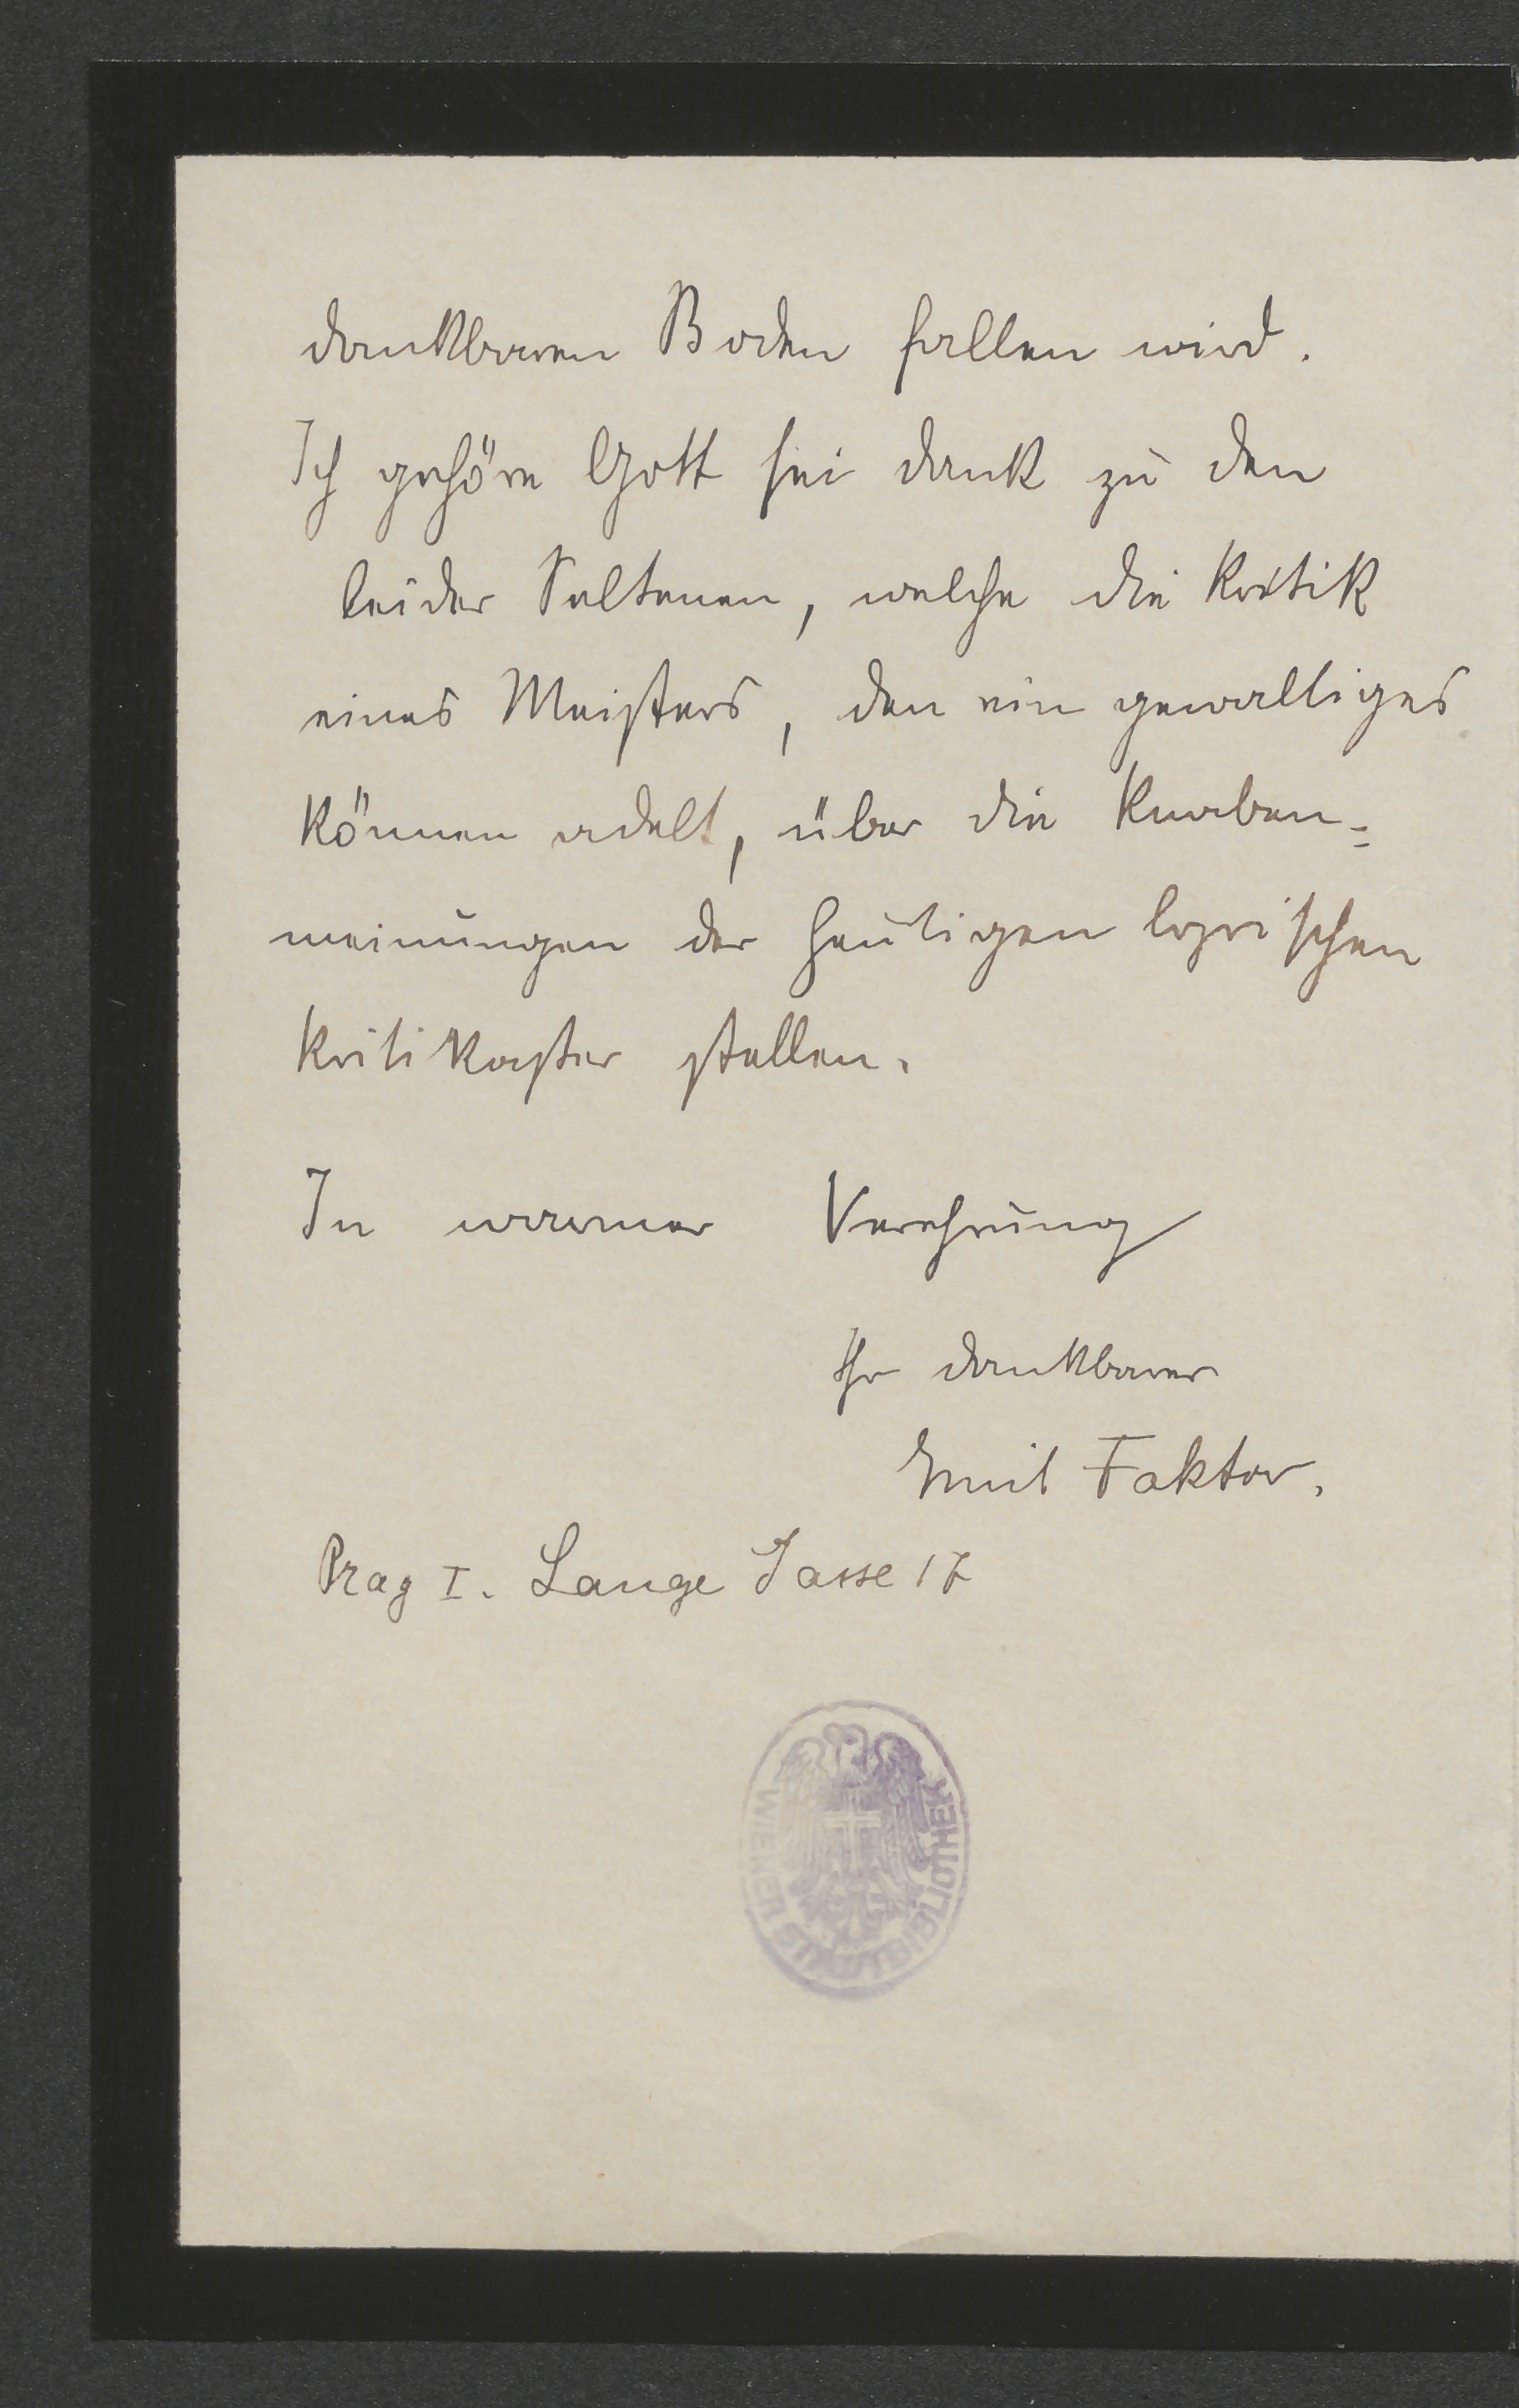 dankbaren Boden fallen wird.
Ich gehöre Gott sei dank zu den
leider Seltenen, welche die Kritik
eines Meisters, den ein gewaltiges
Können adelt, über die Knaben=
meinungen der heutigen lyrischen
Kritikaster stellen.
In warmer Verehrung
Ihr dankbarer
Emil Faktor.
Prag I. Lange Gasse 17
WIENER STADTBIBLIOTHEK